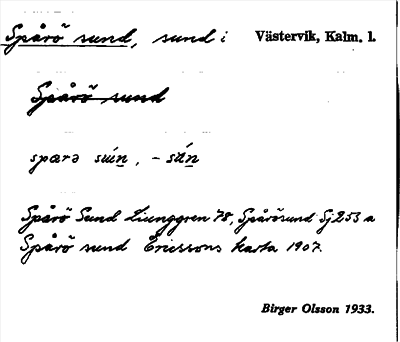 Spårö sund, sund i Västervik, Kalm. l.
Spårö sund
sparə sún̲, – sún̲
Spårö Sund Ljunggren 78, Spårösund Sj 253 a
Spårö sund Ericssons karta 1907.
Birger Olsson 1933.